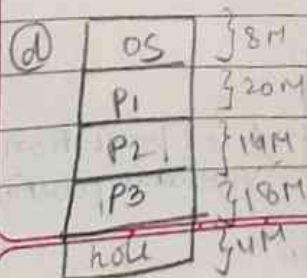 (d) OS } 8M
P1 } 20M
P2 } 14M
P3 } 18M
hole } 4M